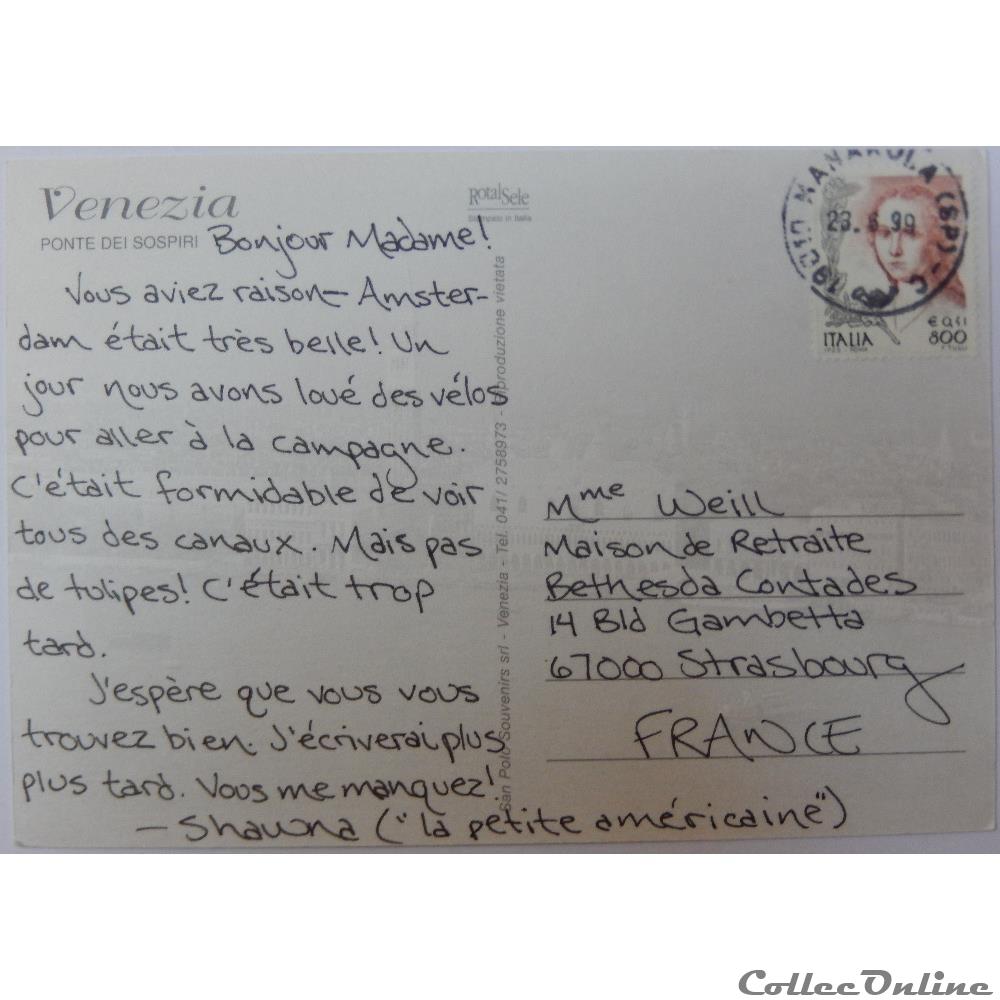 Venezia
PONTE DEI SOSPIRI
RotalSele
Stampato in Italia
Bonjour Madame!
Vous aviez raison – Amster-
dam était très belle! Un
jour nous avons loué des vélos
pour aller à la campagne.
C'était formidable de voir
tous des canaux. Mais pas
de tulipes! C'était trop
tard.
J'espère que vous vous
trouvez bien. J'écriverai plus
plus tard. Vous me manquez!
– Shawna ("la petite américaine")
San Polo Souvenirs srl - Venezia - Tel. 041/ 2758973 - Riproduzione vietata
19010 MANAROLA (SP)
23.6.99
€ 0,41
ITALIA 800
Mme Weill
Maison de Retraite
Bethesda Contades
14 Bld Gambetta
67000 Strasbourg
FRANCE
CollecOnline